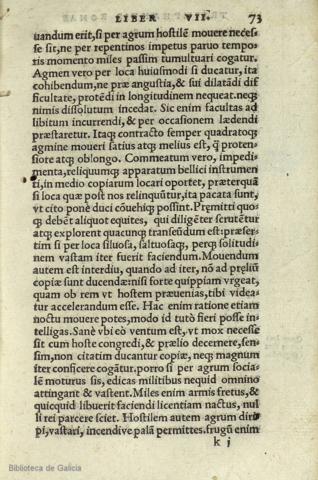 LIBER VII. 73
uandum erit, si per agrum hostilē mouere necesse
se sit, ne per repentinos impetus paruo tempo-
ris momento miles passim tumultuari cogatur.
Agmen vero per loca huiusmodi si ducatur, ita
cohibendum, ne præ angustia, & sui dilatādi dif
ficultate, protēdi in longitudinem nequeat. neq;
nimis dissolutum incedat. Sic enim facultas ad
libitum incurrendi, & per occasionem lædendi
præstaretur. Itaq; contracto semper quadratoq;
agmine moueri satius atq; melius est, q̄ proten-
siore atq; oblongo. Commeatum vero, impedi-
menta, reliquumq; apparatum bellici instrumen
ti, in medio copiarum locari oportet, præterquā
si loca quæ post nos relinquūtur, ita pacata sunt,
vt cito pone duci cōuehiq; possint. Præmitti quo-
q; debēt aliquot equites, qui diligēter scrutētur
atq; explorent quacunq; transeūdum est: præser-
tim si per loca siluosa, saltuosaq;, perq; solitudi
nem vastam iter fuerit faciendum. Mouendum
autem est interdiu, quando ad iter, nō ad prœliū
copiæ sunt ducendæ: nisi forte quippiam vrgeat,
quam ob rem vt hostem præuenias, tibi videa-
tur accelerandum esse. Hac enim ratione etiam
noctu mouere potes, modo id tutò fieri posse in-
telligas. Sanè vbi eò ventum est, vt mox necesse
sit cum hoste congredi, & prælio decernere, sen-
sim, non citatim ducantur copiæ, neq; magnum
iter conficere cogātur. porro si per agrum socia-
lē moturus sis, edicas militibus nequid omnino
attingant & vastent. Miles enim armis fretus, &
quicquid libuerit faciendi licentiam nactus, nul
li rei parcere sciet. Hostilem autem agrum diri
pi, vastari, incendiue palā permittes. frugū enim
k j
Biblioteca de Galicia